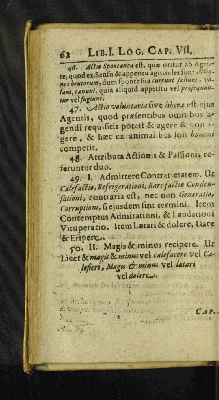 62 LIB. I. LOG. CAP. VII.
46. Actio Spontanea est, quæ oritur ab Agen-
te, quod ex Sensu & appetitu agit, tales sunt Actio-
nes brutorum, dum sponte sua currunt, saliunt, vo-
lant, canunt, quia aliquid appetitu vel prosequun-
tur vel fugiunt.
47. Actio voluntaria sive libera est ejus
Agentis, quod præsentibus omnibus a-
gendi requisitis potest & agere & non a-
gere, & hæc ex animalibus soli homini
competit.
48. Attributa Actionis & Passionis, re-
feruntur duo.
49. I. Admittere Contrarietatem. Ut
Calefactio, Refrigerationi, Rarefactio Conden-
sationi, contraria est, nec non Generatio,
Corruptioni, si ejusdem sint termini. Item
Contemptus Admirationi, & Laudationi
Vituperatio. Item Lætari & dolere, Dare
& Eripere.
50. II. Magis & minus recipere. Ut
Licet & magis & minus vel calefacere vel Ca-
lefieri, Magis & minus vel lætari
vel dolere.
CAP.